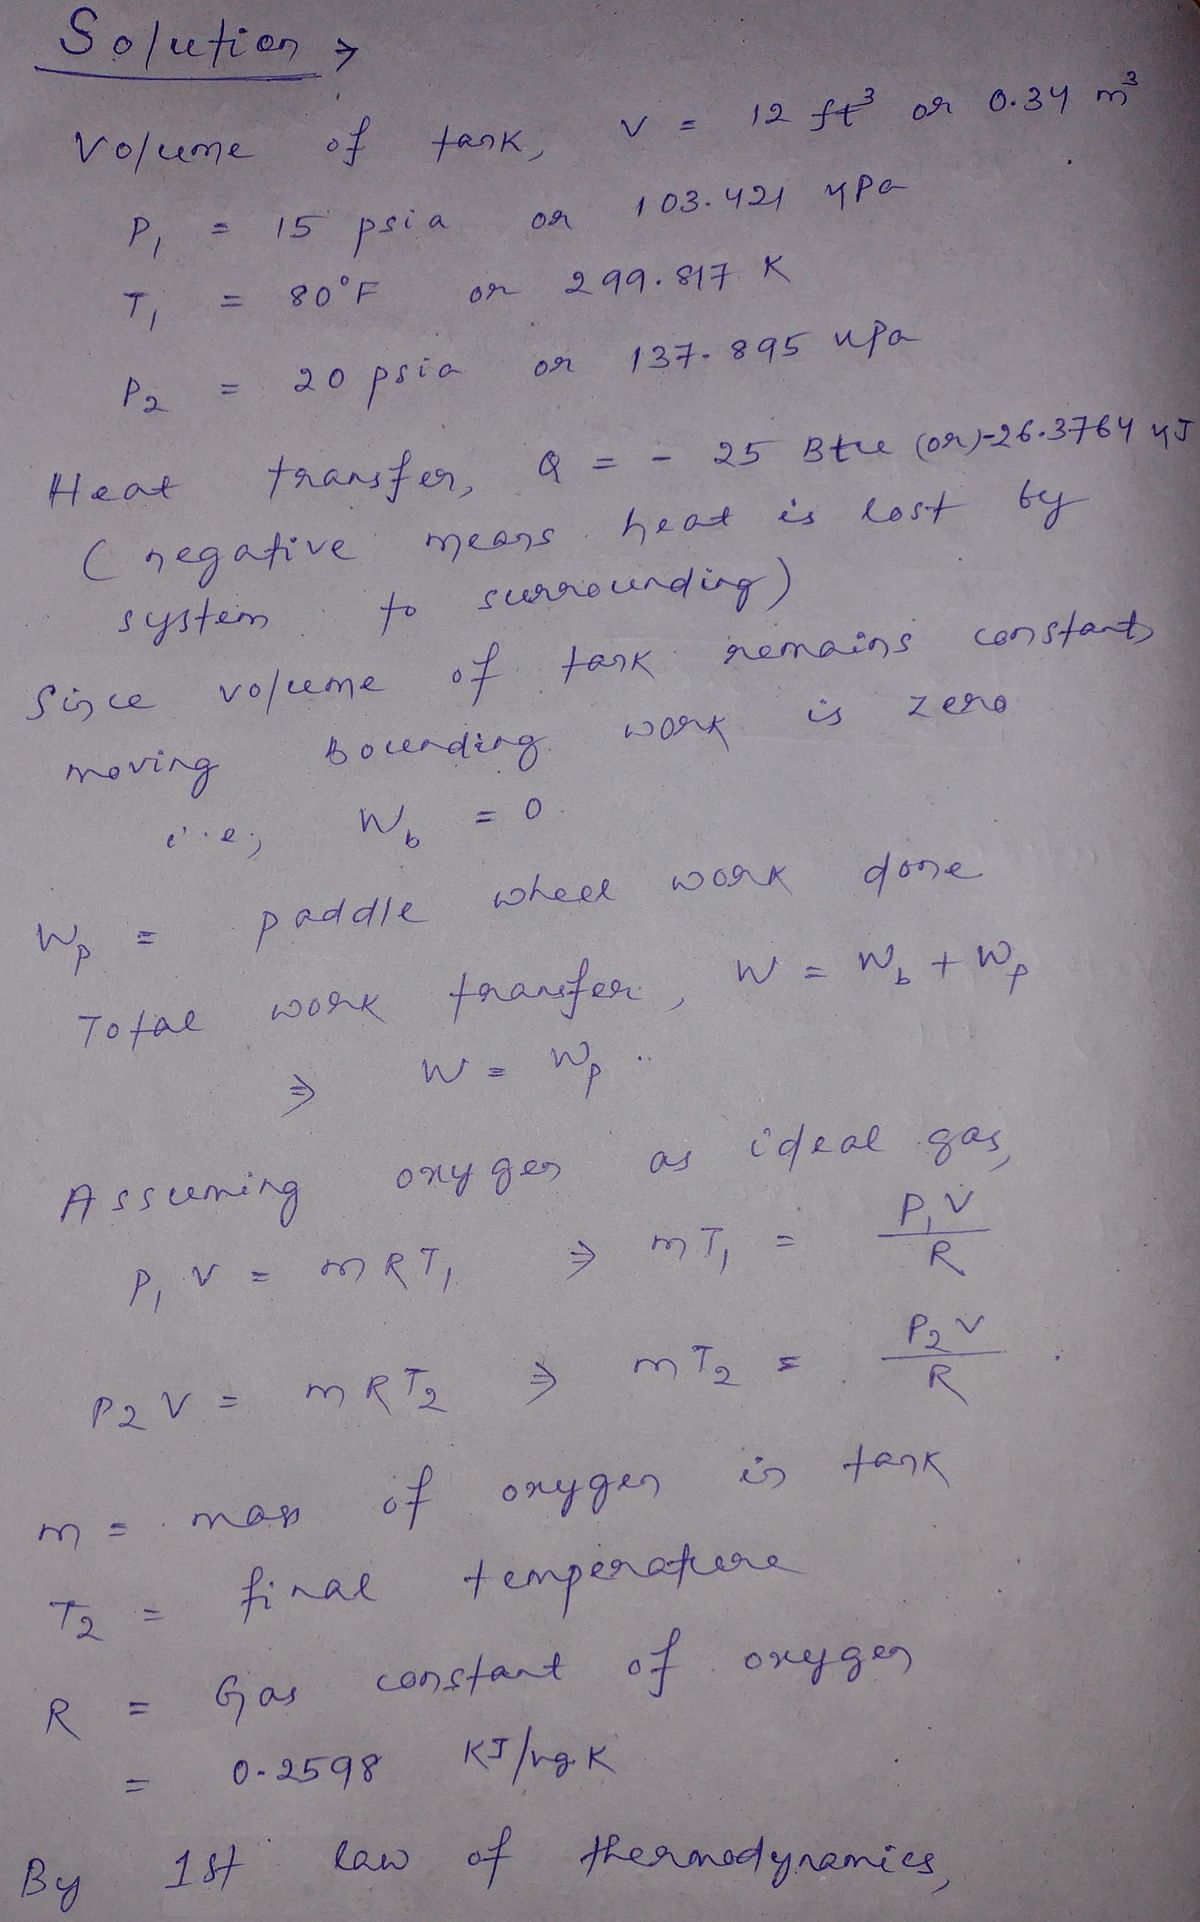 Solution →
Volume of tank, V = 12 ft³ or 0.34 m³
P₁ = 15 psia or 103.421 kPa
T₁ = 80°F or 299.817 K
P₂ = 20 psia or 137.895 kPa
Heat transfer, Q = - 25 Btu (or) -26.3764 kJ
(negative means heat is lost by
system to surrounding)
Since volume of tank remains constant,
moving Bounding work is zero
i.e., W_b = 0
W_p = paddle wheel work done
Total work transfer, W = W_b + W_p
⇒ W = W_p
Assuming oxygen as ideal gas,
P₁V = mRT₁ ⇒ mT₁ = P₁V/R
P₂V = mRT₂ ⇒ mT₂ = P₂V/R
m = mass of oxygen in tank
T₂ = final temperature
R = Gas constant of oxygen
= 0.2598 KJ/kg K
By 1st law of thermodynamics,